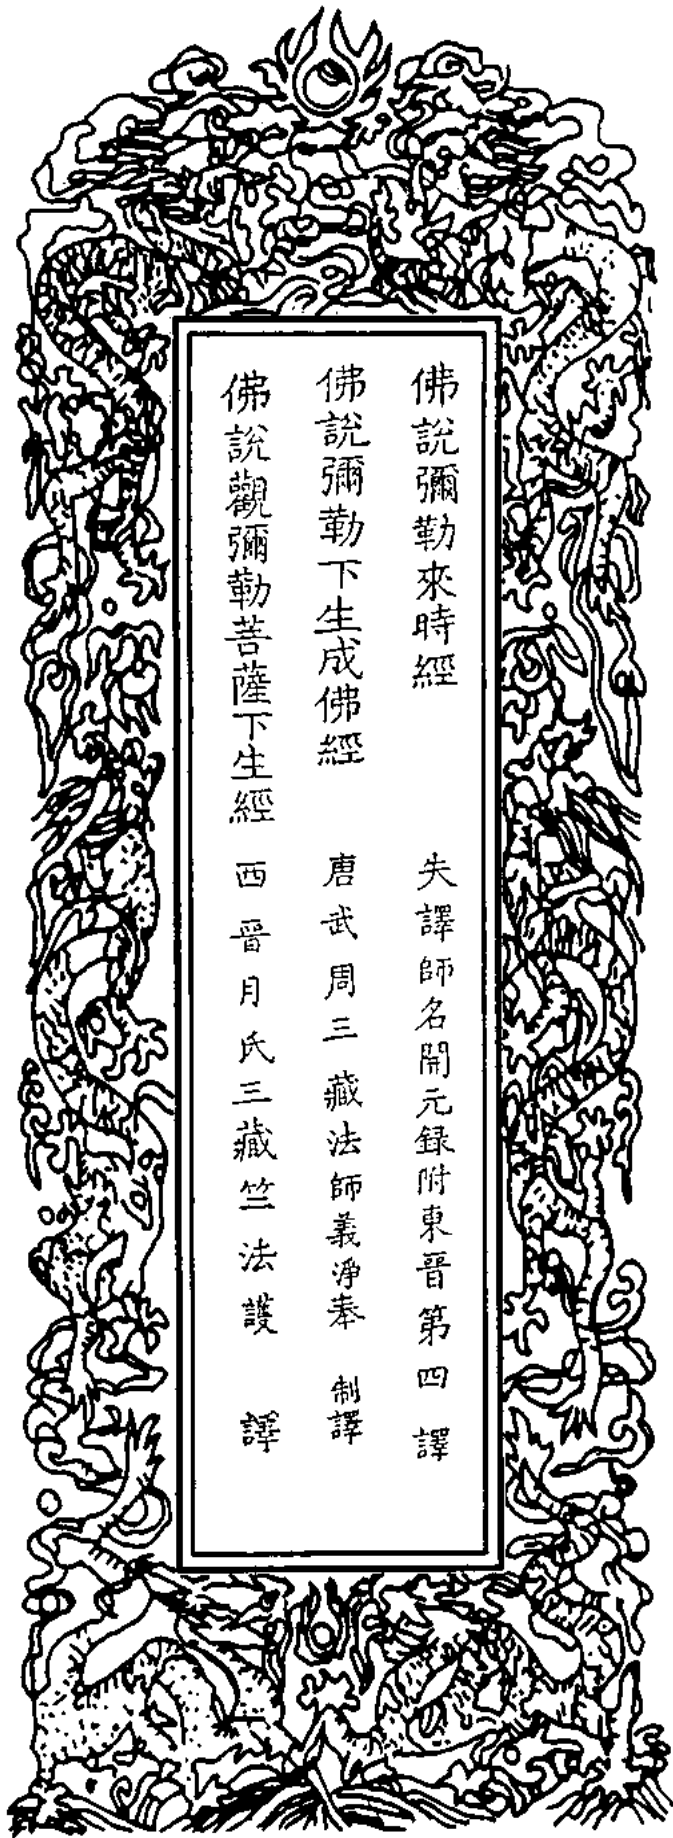 佛說彌勒來時經　失譯師名開元録附東晉第四譯
佛說彌勒下生成佛經　唐武周三藏法師義淨奉　制譯
佛說觀彌勒菩薩下生經　西晉月氏三藏竺法護　譯